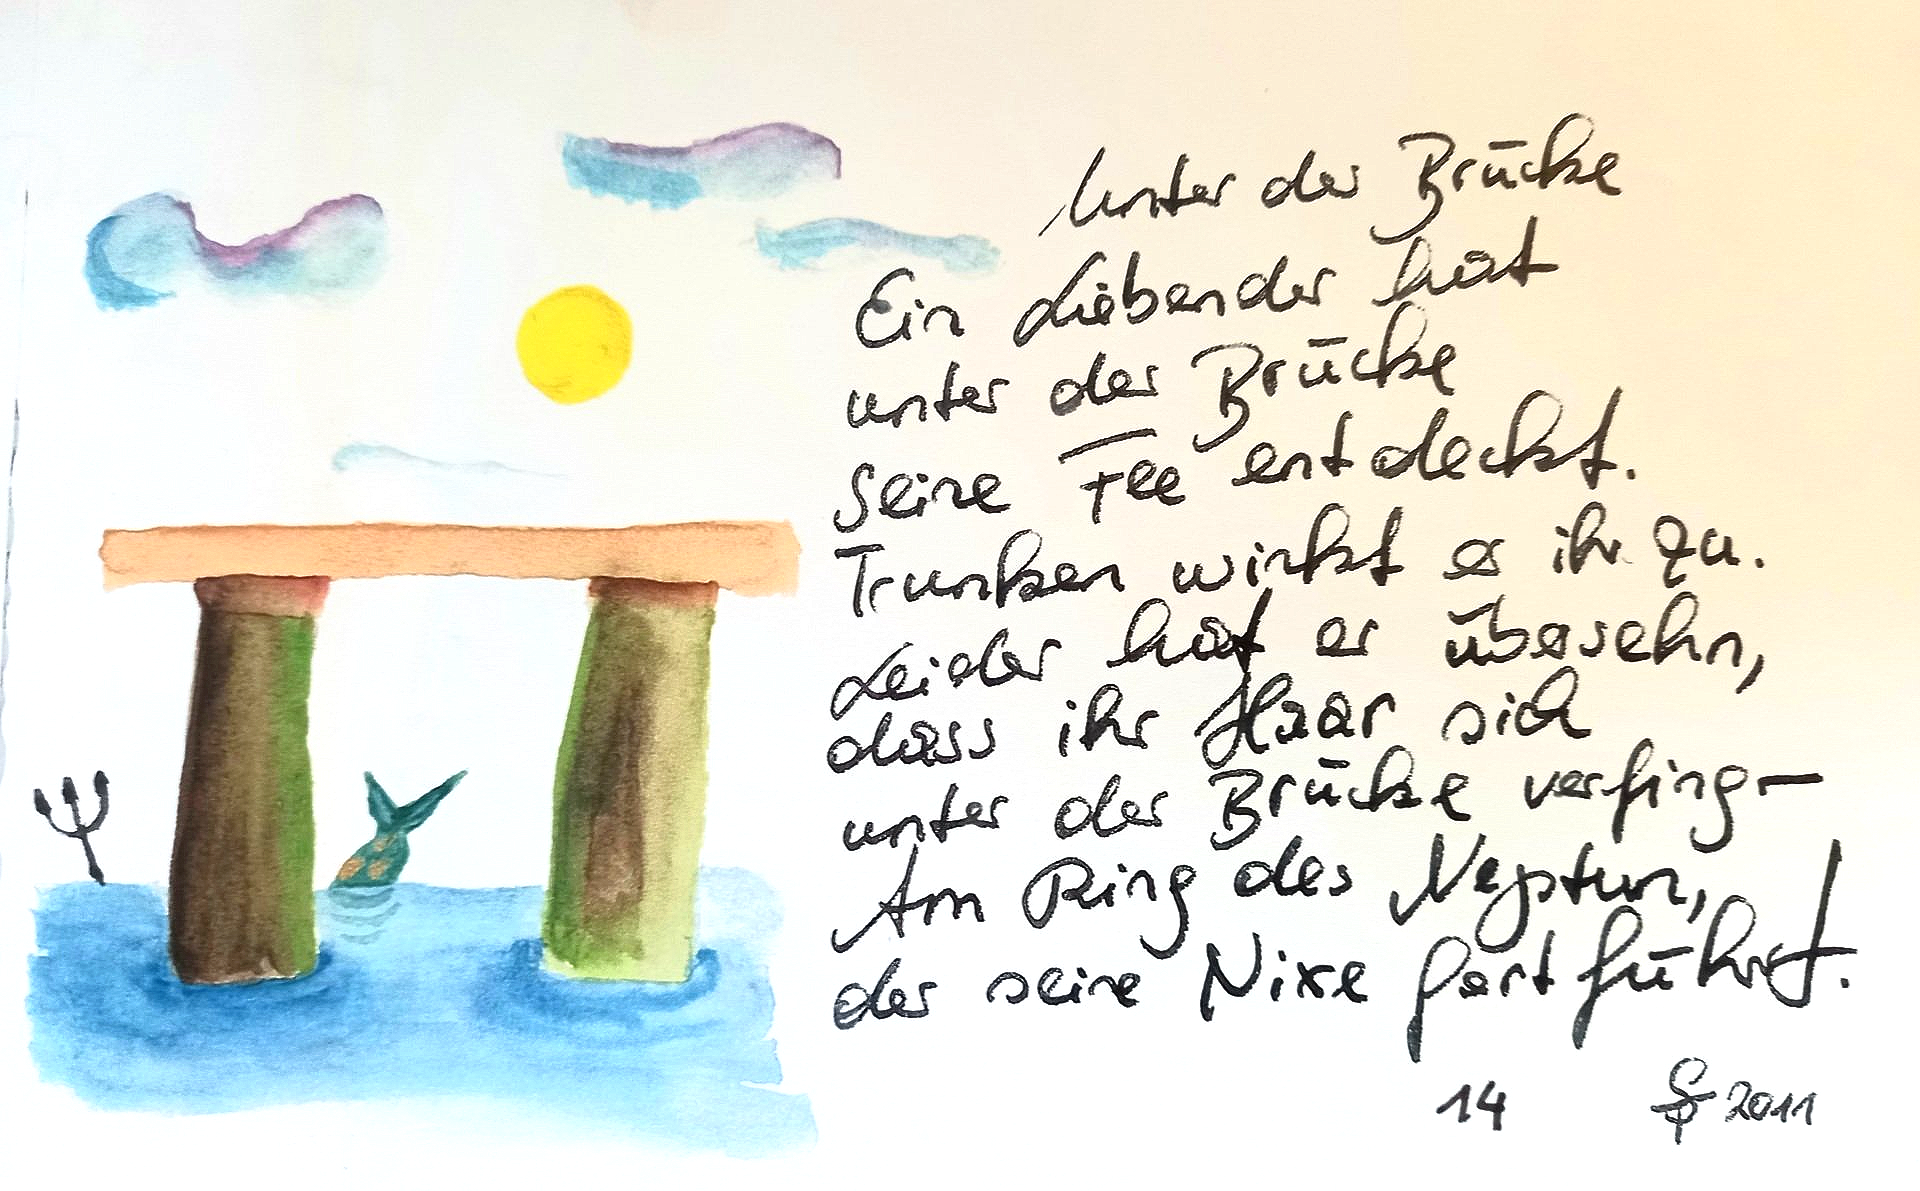 Unter der Brücke
Ein Liebender hat
unter der Brücke
seine Fee entdeckt.
Trunken winkt er ihr zu.
Leider hat er übersehn,
dass ihr Haar sich
unter der Brücke verfing –
Am Ring des Neptun,
der seine Nixe fortführt.
14 2011